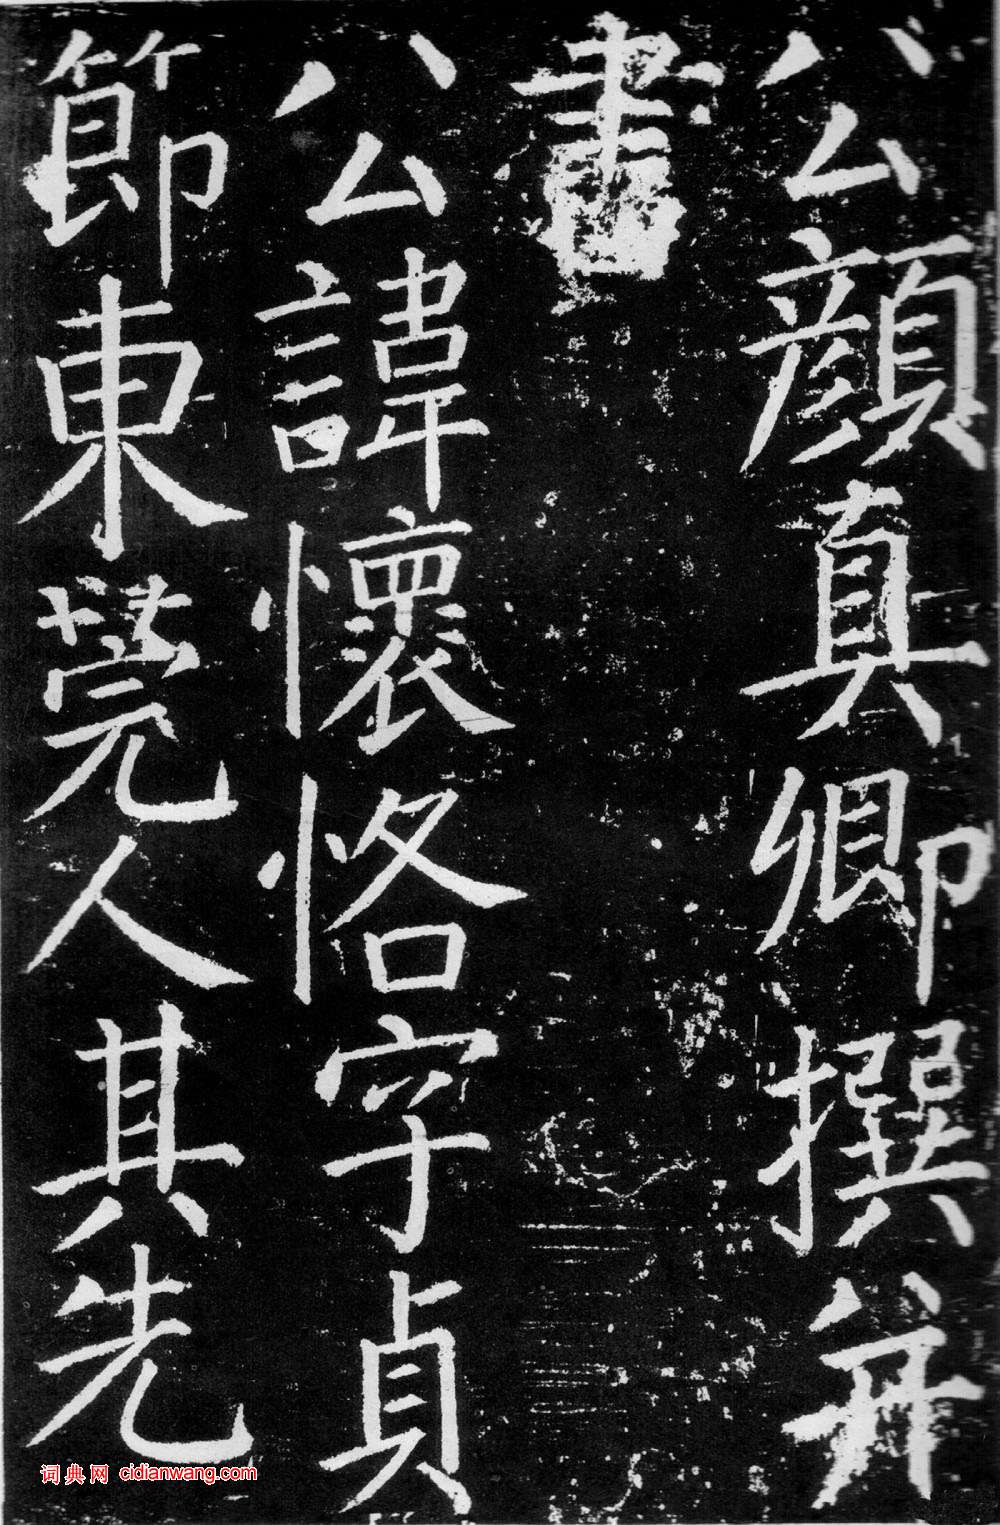 公顏真卿撰并
書
公諱懷恪字貞
節東莞人其先
词典网 cidianwang.com